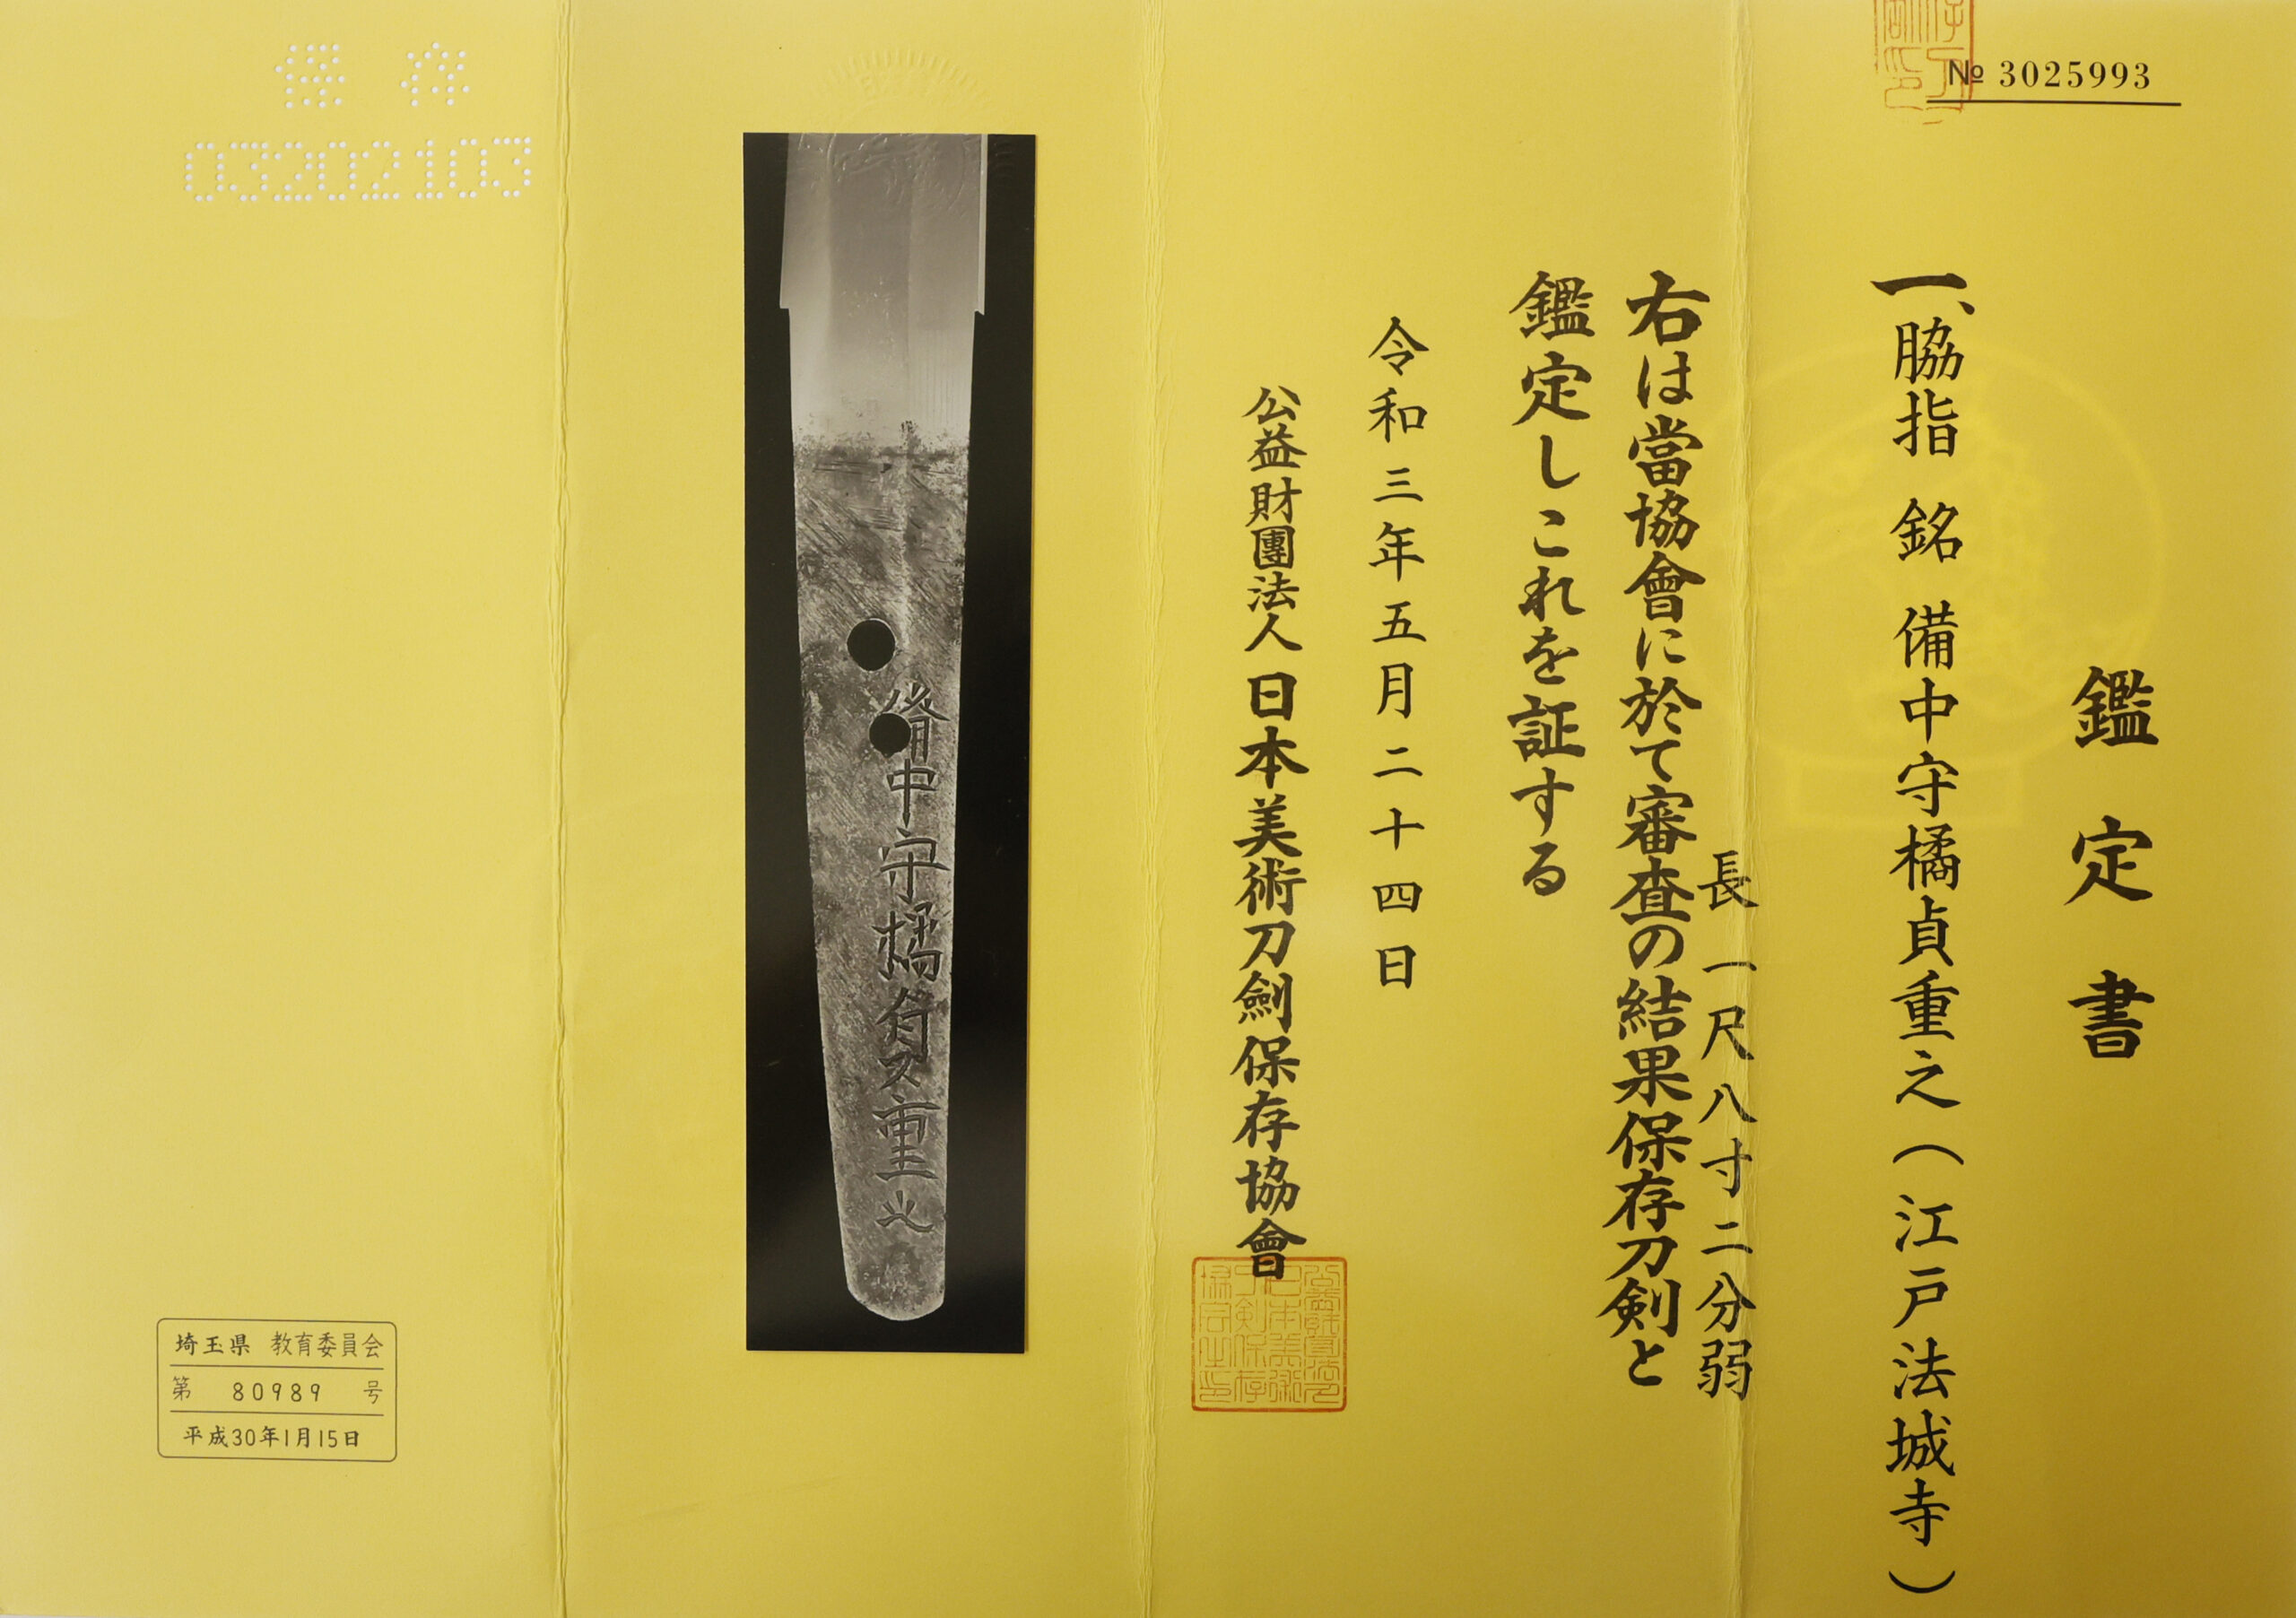 № 3025993
鑑定書
一、脇指 銘 備中守橘貞重之(江戸法城寺)
長 一尺八寸二分弱
右は當協會に於て審査の結果保存刀剣と
鑑定しこれを証する
令和三年五月二十四日
公益財團法人 日本美術刀劍保存協會
備中守橘貞重之
保存
03202103
埼玉県 教育委員会
第 80989 号
平成30年1月15日